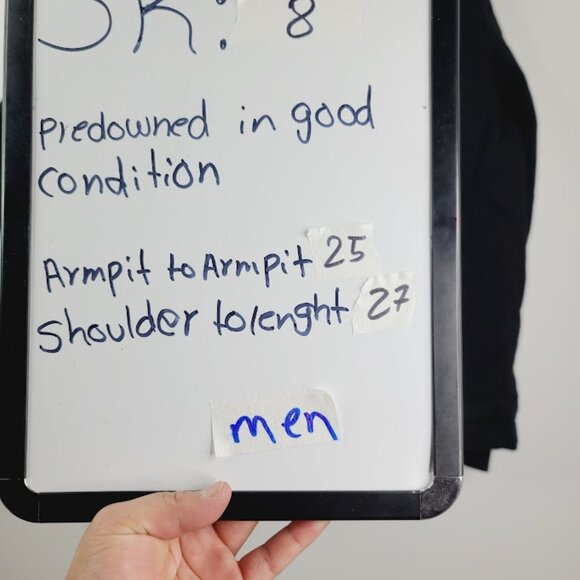 SK: 8
Predowned in good
condition
Armpit to Armpit 25
Shoulder to lenght 27
men